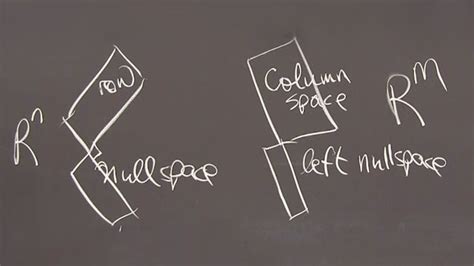 row
R^n
nullspace
Column
space
R^m
left nullspace